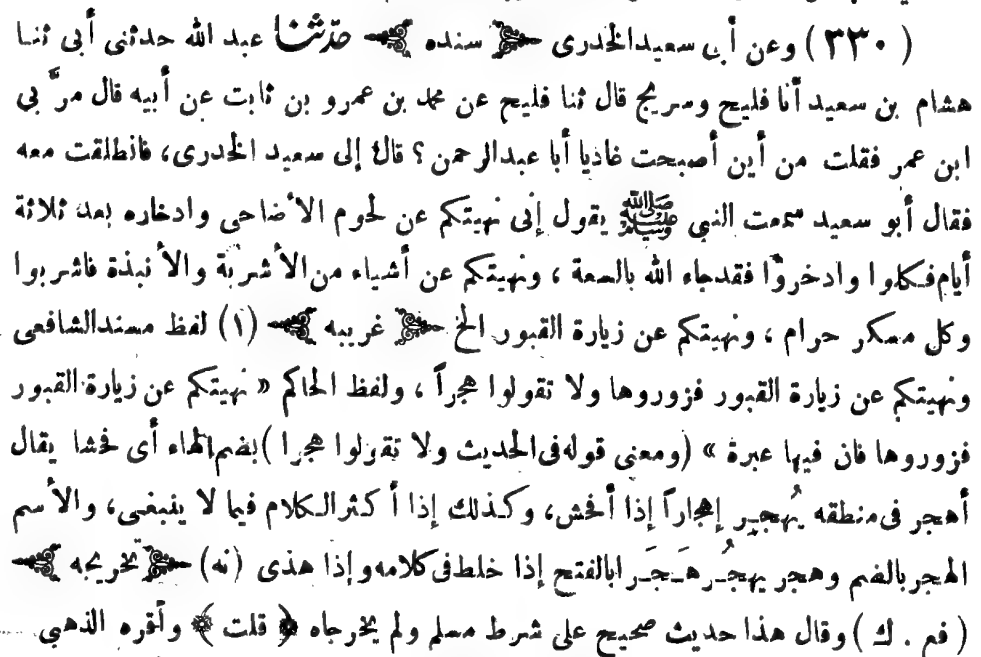 ( ٣٣٠ ) وعن أبى سعيد الخدرى سنده حدّثنا عبد الله حدثنى أبى ثنا
هشام بن سعيد أنا فليح وسريج قال ثنا فليح عن محمد بن عمرو بن ثابت عن أبيه قال مرَّ بي
ابن عمر فقلت من أين أصبحت غاديا أبا عبد الرحمن ؟ قال إلى سعيد الخدرى، فانطلقت معه
فقال أبو سعيد سمعت النبي ﷺ يقول إنى نهيتكم عن لحوم الأضاحى وادخاره بعد ثلاثة
أيام فكلوا وادخروّا فقد جاء الله بالسعة ، ونهيتكم عن أشياء من الأشربة والأنبذة فاشربوا
وكل مسكر حرام ، ونهيتكم عن زيارة القبور الخ غريبه (١) لفظ مسند الشافعى
ونهيتكم عن زيارة القبور فزوروها ولا تقولوا هجراً ، ولفظ الحاكم « نهيتكم عن زيارة القبور
فزوروها فان فيها عبرة » (ومعنى قوله فى الحديث ولا تقولوا هجرا )بضم الهاء أى فحشا يقال
أهجر فى منطقه يُهجِر إهجاراً إذا أفحش، وكذلك إذا أكثر الكلام فيما لا ينبغى، والأسم
الهجر بالضم وهجر يهجُر هَجَرا بالفتح إذا خلط فى كلامه وإذا هذى (نه) تخريجه
( فع . ك ) وقال هذا حديث صحيح على شرط مسلم ولم يخرجاه ﴿ قلت ﴾ وأقره الذهبي